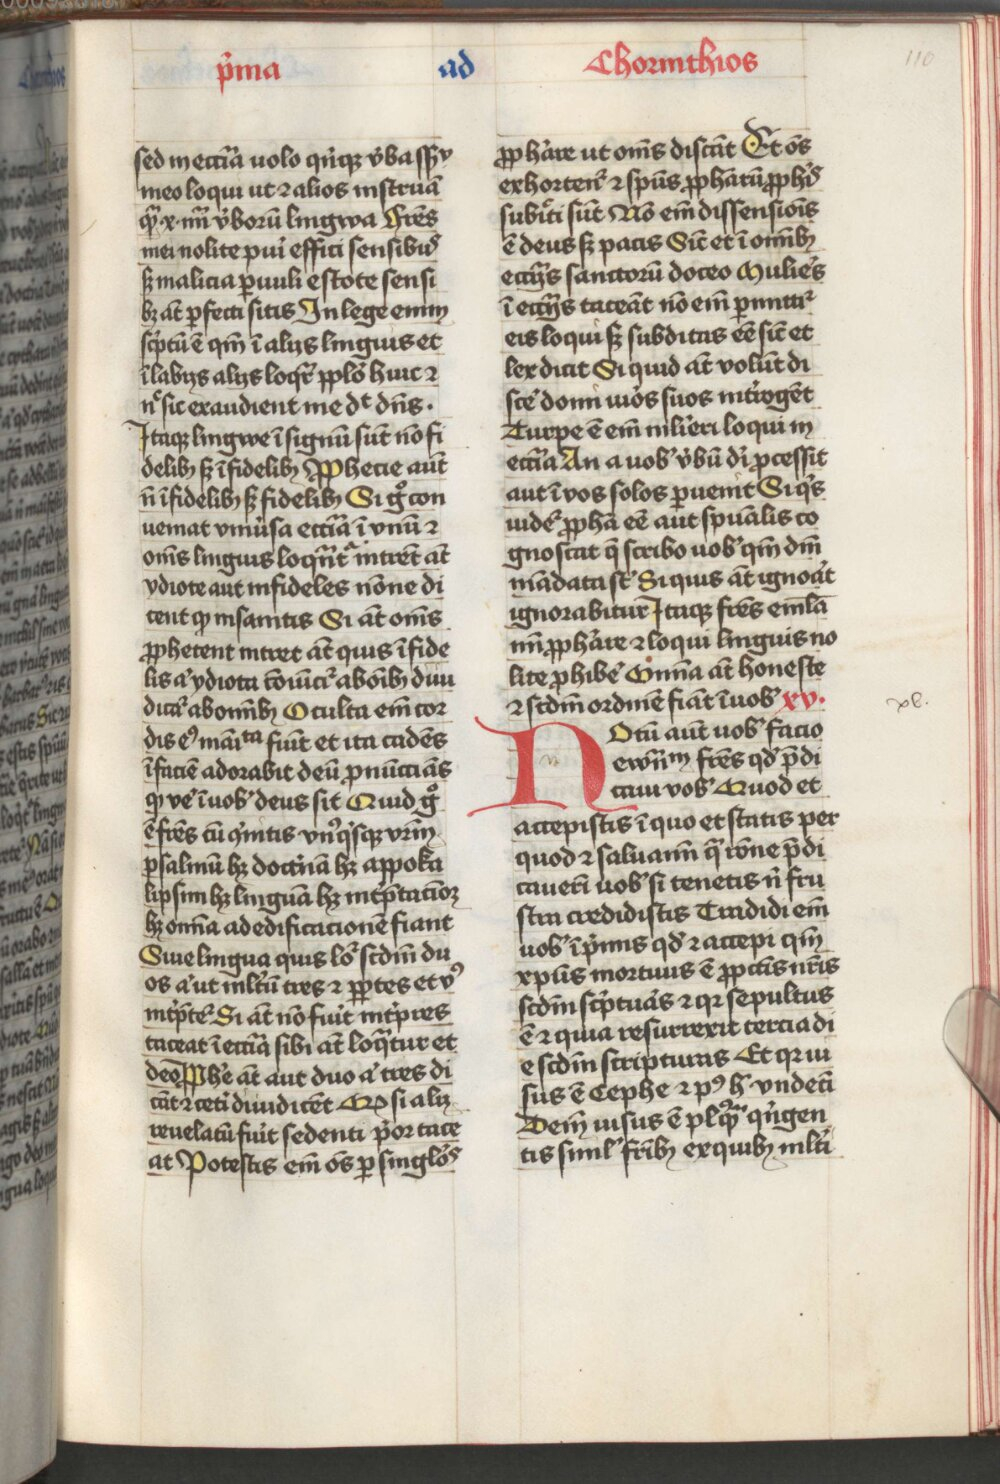 p̄ma ad Chorinthios
110
sed in ecc̄ia uolo qn̄qꝫ v̄ba sēsv
meo loqui ut ⁊ alios instruā
qᷓꝫ .x. mīl v̄borū lingwa Fr̄es
mei nolite pu̇i effici sensibꝰ
sꝫ malicia ꝑuuli estote sensi
bꝫ āt ꝑfecti sitis In lege enim
sc̄ptū ē qm̄ ī alijs linguis et
ī labijs alijs loqr̄ ppl̄o huic ⁊
nͨ sic exaudient me dt̄ dn̄s .
Itaqꝫ lingwe ī signū sūt nō fi
delibꝫ sꝫ īfidelibꝫ Ꝓphecie aūt
n̄ īfidelibꝫ sꝫ fidelibꝫ Si gͦ con
ueniat vniu̇sa ecc̄ia ī vnū ⁊
om̄s linguis loqn̄t intrēt āt
ydiote aut infideles nōne di
cent qꝫ insanitis Si āt om̄s
ꝓphetent intret āt quis īfide
lis aͭ ydiota cōuicͥ abōibꝫ diiu
dicaͬ ab omībꝫ Oculta em̄ cor
dis eꝰ māīta fiūt et ita cadēs
ī faciē adorabit deū ꝓnūcciās
qꝫ ve ī uobꝰ deus sit Quid gͦ
ē fr̄es cū ↄuintis vn̄qͥsqꝫ vr̄m
psalmū hꝫ doct̄nā hꝫ appoka
lipsim hꝫ linguā hꝫ int̄p̄tacōꝫ
hꝫ om̄ia ad edificacionē fiant
Siue lingua quis loͬ scdm̄ du
os aͭ ut ml̄tū tres ⁊ ꝑ ptes et vꝰ
int̄p̄teͭ Si āt nō fuīt int̄pres
taceat ī ecc̄ia sibi āt loqᷓtur et
deo Ꝓphe āt aut duo aͭ tres di
cāt ⁊ cet̄i diiudicēt Qꝫ si alij
reuelatū fuīt sedenti p̄or tace
at Potestis em̄ ōs ꝑ singl̄os
ꝓph̄are ut om̄s discāt Et ōs
exhortenͬ ⁊ sp̄us ꝓphātū ꝓphꝭ
subiͨti sūt Nō em̄ dissensionis
ē deus sꝫ pacis Sic̄ et ī omībꝫ
ecc̄ijs sanctorū doceo Mulie̅s
ī ecc̄ijs taceāt nō em̄ ꝑmittiͬ
eis loqui sꝫ subditas eē sic̄ et
lex dicit Si quid āt volūt di
sce̅ domi uiros suos int̄rogēt
Turpe ē em̄ mlieri loqui in
ecc̄ia An a uobꝰ v̄bū di̅ ꝓcessit
aut ī vos solos ꝑuenit Si qͥs
uideͬ ꝓpha eē aut sp̄ualis co
gnoscat q̄ scribo uobꝰ qm̄ dn̄i
mādata sͭ Si quis āt ignoāt
ignorabitur Itaqꝫ fr̄es emla
mī ꝓph̄are ⁊ loqui linguis no
lite ꝓhibe̅ Om̄ia āt honeste
⁊ scdm̄ ordinē fiāt ī uobꝰ xv.
xv.
Notū aūt uobꝰ facio
ewn̄m fr̄es qd̄ p̄di
caui vobꝰ Quod et
accepistis ī quo et statis per
quod ⁊ saluamī qᷓ rōne p̄di
caueri uobꝰ si tenetis n̄ fru
stra credidistis Tradidi em̄
uobꝰ ī p̄mis qd̄ ⁊ accepi qm̄
xp̄us mortuus ē ꝓ pctis nr̄is
scdm̄ sc̄pturas ⁊ qr sepultus
ē ⁊ quia resurrexit tercia di
e scdm̄ scripturas Et qr ui
sus ē Cephe ⁊ pꝰ hͨ vndeci
Dem̄ uisus ē plqᷓ qn̄gen
tis siml̄ fr̄ibꝫ ex quibꝫ ml̄ti